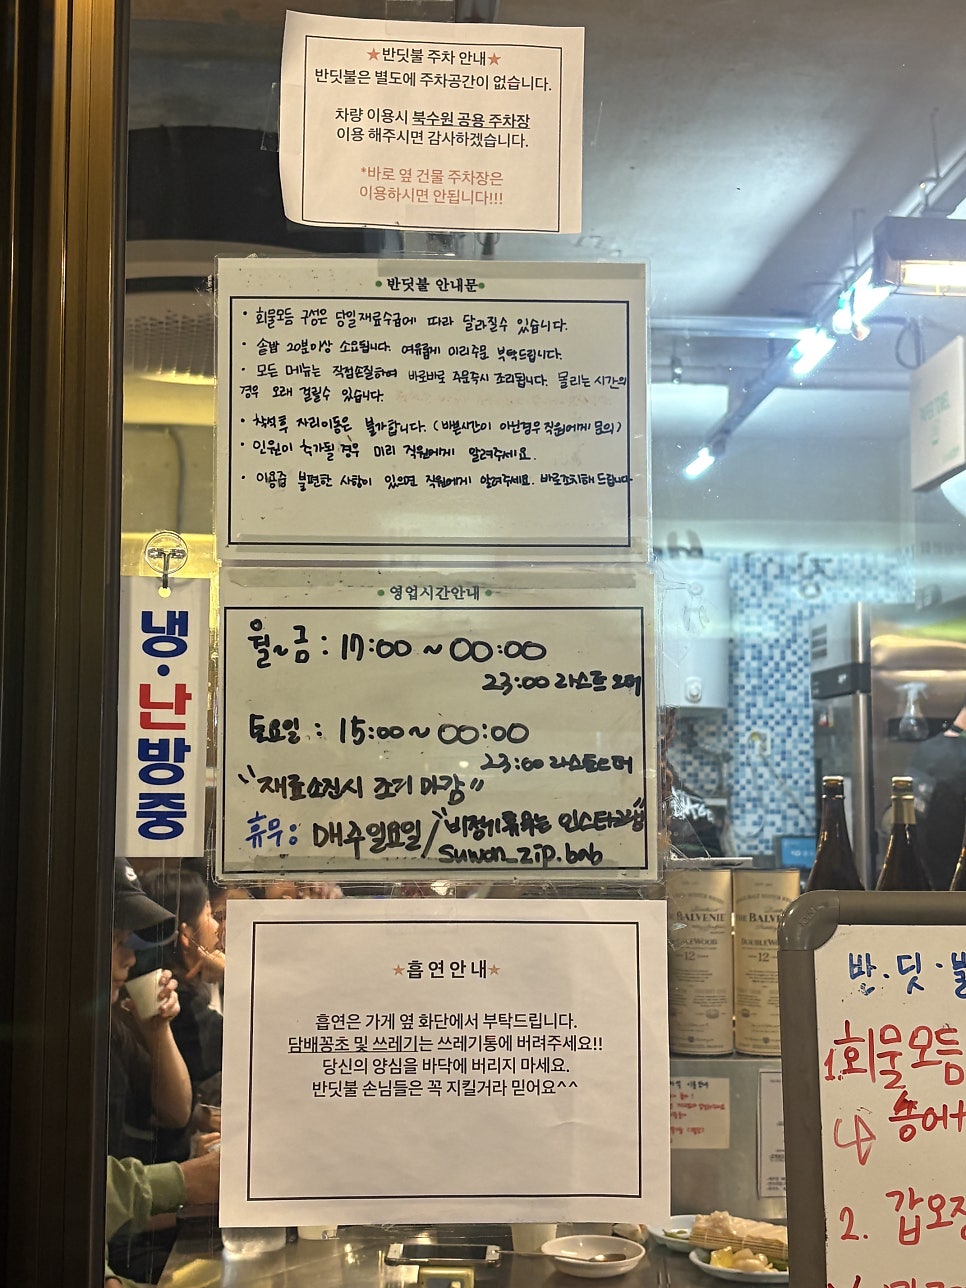 ★반딧불 주차 안내★
반딧불은 별도에 주차공간이 없습니다.
차량 이용시 북수원 공용 주차장
이용 해주시면 감사하겠습니다.
*바로 옆 건물 주차장은
이용하시면 안됩니다!!!
반딧불 안내문
• 회물모듬 구성은 당일재료수급에 따라 달라질수 있습니다.
• 솥밥 20분이상 소요됩니다. 여유롭게 미리주문 부탁드립니다.
• 모든 메뉴는 직접손질하여 바로바로 주문즉시 조리됩니다. 몰리는 시간의
경우 오래 걸릴수 있습니다.
• 착석후 자리이동은 불가합니다. (바쁜시간이 아닌경우 직원에게 문의)
• 인원이 추가될 경우 미리 직원에게 알려주세요.
• 이용중 불편한 사항이 있으면 직원에게 알려주세요. 바로조치해 드립니다
•영업시간안내•
월~금 : 17:00 ~ 00:00
23:00 라스트오더
토요일 : 15:00 ~ 00:00
23:00 라스트오더
"재료소진시 조기 마감"
휴무: 매주일요일 / "비정기휴무는 인스타그램"
suwon_zip.bab
냉·난방중
★흡연안내★
흡연은 가게 옆 화단에서 부탁드립니다.
담배꽁초 및 쓰레기는 쓰레기통에 버려주세요!!
당신의 양심을 바닥에 버리지 마세요.
반딧불 손님들은 꼭 지킬거라 믿어요^^
BALVENIE
DOUBLEWOOD
12
THE BALVE
DOUBLEW
12
반·딧·불
1. 회물모듬
숭어+
2. 갑오징